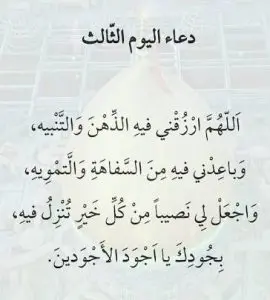 دعاء اليوم الثّالث
اَللّهُمَّ ارْزُقْني فيهِ الذِّهْنَ وَالتَّنْبيه،
وَباعِدْني فيهِ مِنَ السَّفاهَةِ وَالَّتمْويهِ،
وَاجْعَلْ لي نَصيباً مِنْ كُلِّ خَيْرٍ تُنْزِلُ فيهِ،
بِجُودِكَ يا اَجْوَدَ الأَجْوَدينَ.